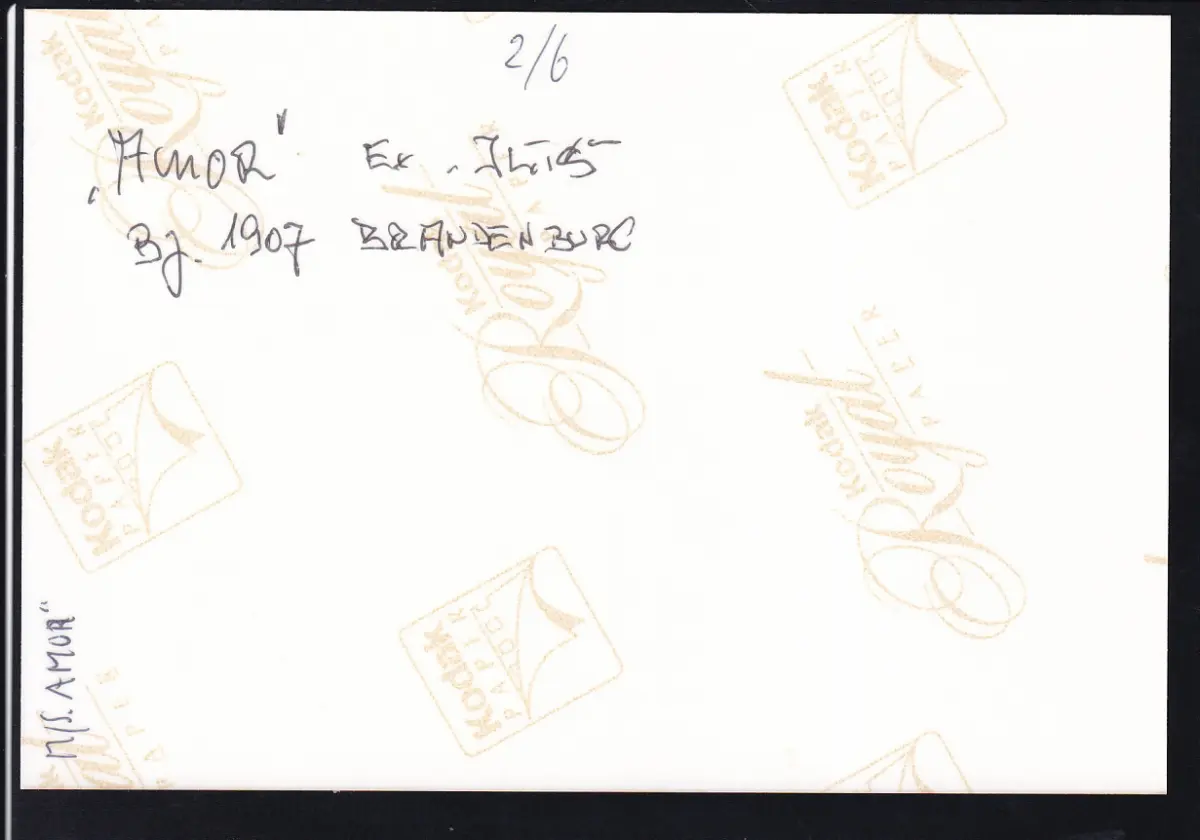 2/6
„AMOR" Ex.
Bj. 1907 BRANDENBURG
M/S. AMOR"
Kodak Royal PAPER
Kodak PAPIER
Kodak Royal PAPER
Kodak PAPIER
Kodak Royal PAPER
Kodak PAPIER